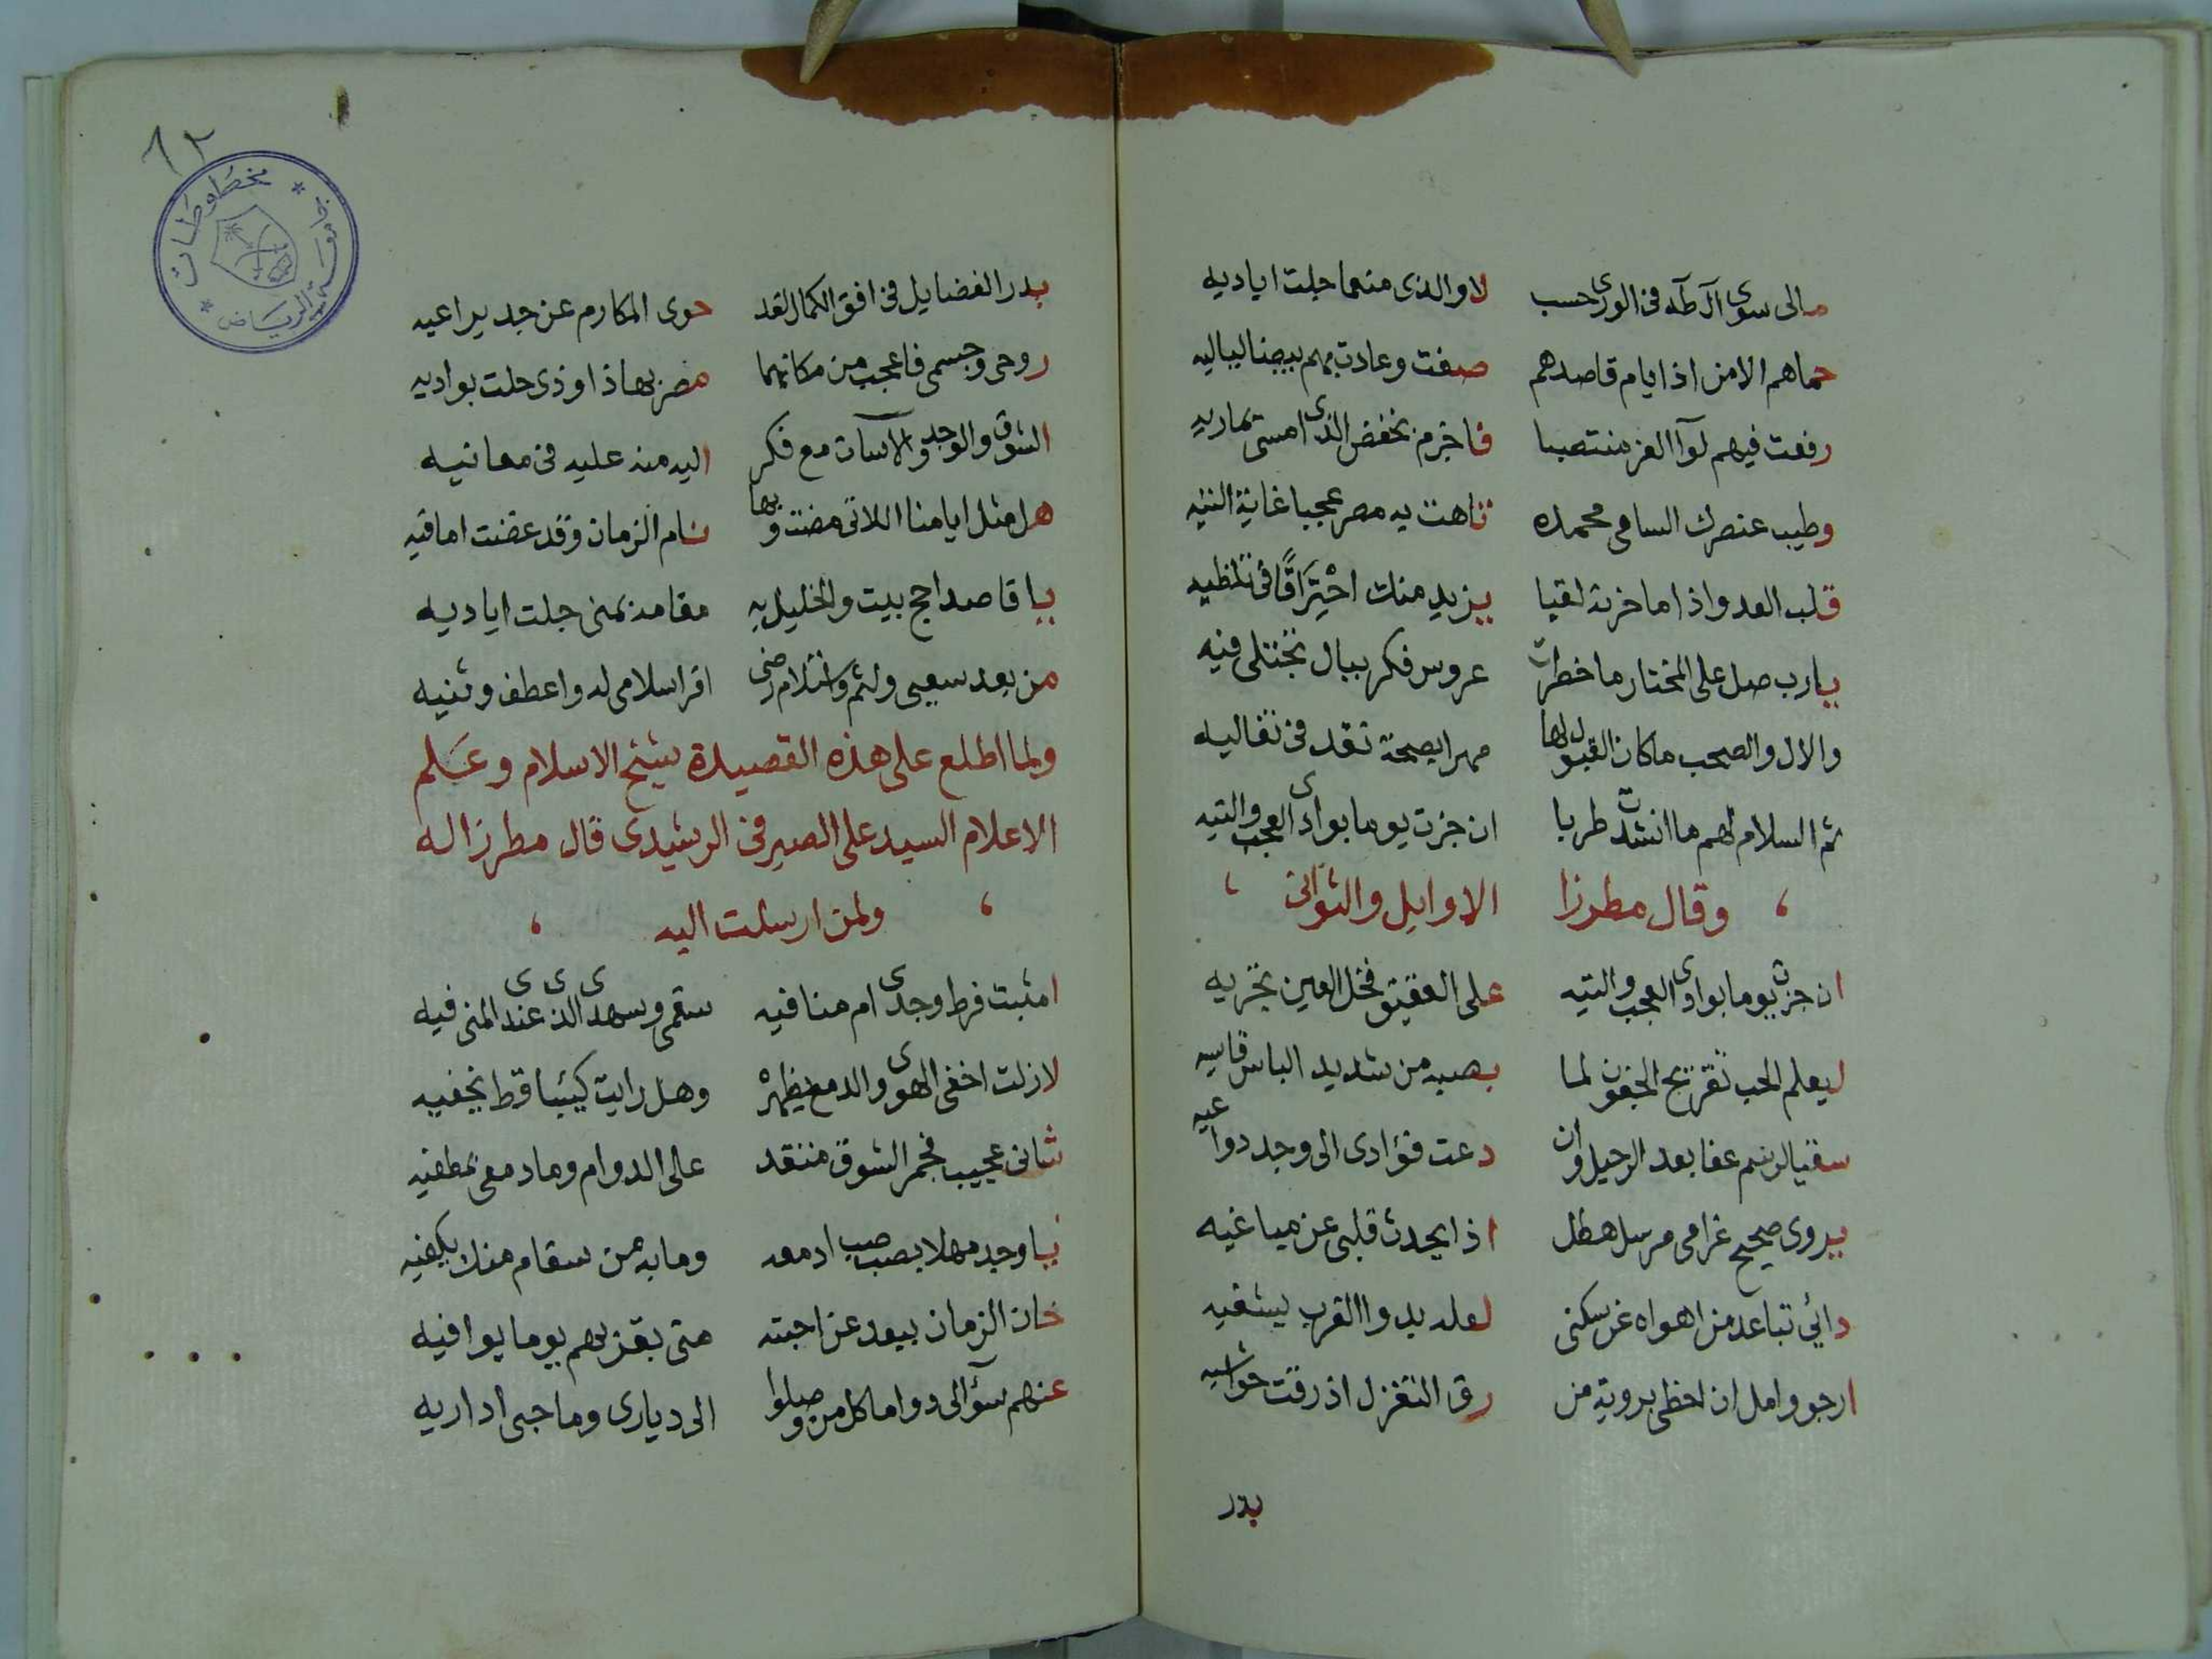 مالى سوى آل طه فى الورى حسب لا والذى منهما جلت اياديه
حماهم الامن اذ ايام قاصدهم صفت وعادت بهم بيضا لياليه
رفعت فيهم لوآ العز منتصبا فاخزم بخفض الذى امسى يماريه
وطيب عنصرك السامى محمده تاهت به مصر عجبا غاية التيه
قلب العدو اذا ما حزته لقيا يزيد منك احْتِرَاقًا فى تلظيه
يارب صل على المختار ما خطرت عروس فكر ببال تجتلى فيه
والال والصحب ما كان القبول لها مهرا بصحة نقد فى تغاليه
ثم السلام لهم ما انشدت طربا ان جزت يوما بوادى العجب والتيه
وقال مطرزا الاوايل والثوانى
ان جزت يوما بوادى العجب والتيه على العقيق فخل العين تجريه
ليعلم الحب تقريح الجفون لما بصبه من شديد الباس قاسيه
سقيا لرسم عفا بعد الرحيل وان دعت فؤادى الى وجد دواعيه
يروى صحيح غرامى مرسل هطل اذا يحدث قلبى عن مباغيه
دائي تباعد من اهواه عن سكنى لعله بدوا القرب يشفيه
ارجو وامل ان احظى بروية من رق التغزل اذ رقت حواشيه
بدر
٦٢
مخطوطات
جامعة الرياض
بدر الفضايل فى افق الكمال لقد حوى المكارم عن جد يراعيه
روحى وجسمى فاعجب من مكانهما مصر بها ذا وذى حلت بواديه
الشوق والوجد والآسآت مع فكر اليه منه عليه فى معانيه
هل مثل ايامنا اللاتى مضت وبها نام الزمان وقد غضت اماقيه
يا قاصدا حج بيت والخليل به مقامه بمنى جلت اياديه
من بعد سعيى ولثم واستلام رضى اقرا سلامى له واعطف وثنيه
ولما اطلع على هذه القصيدة شيخ الاسلام وعَلم
الاعلام السيد على الصيرفى الرشيدى قال مطرزا له
ولمن ارسلت اليه
امثبت فرط وجدى ام منافيه سقمى وسهدى الذى عندى المنى فيه
لازلت اخفى الهوى والدمع يظهرْ وهل رايت كيئبا قط يخفيه
ثانى عجيب فجمر الشوق متقد على الدوام وما دمعى بمطفيه
يا وجد مهلا بصب صب ادمعه وما به من سقام منك يكفيه
خان الزمان ببعد عن احبته متى بقربهم يوما يوافيه
عنهم سؤآلى دواما كل من وصلوا الى ديارى وما حبى اداريه